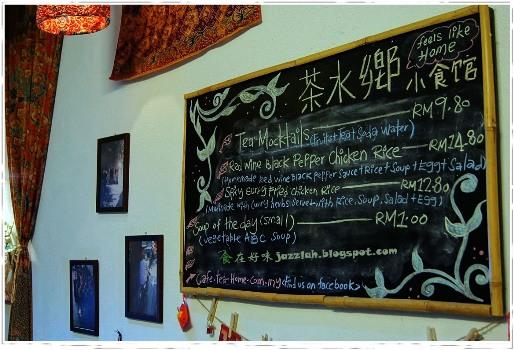 feels like
Home
茶水鄉
小食馆
Tea-Mocktails RM9.80
(Fruit+Tea+Soda Water)
Red Wine Black Pepper Chicken Rice RM14.80
(Homemade Red wine Black pepper Sauce+Rice+Soup+Egg+Salad)
Spicy Curry Fried Chicken Rice RM12.80
(Marinade with Curry, served with Rice, Soup, Salad+Egg)
Soup of the day (small) RM1.00
(Vegetable ABC Soup)
食在好味 jazzlah.blogspot.com
Cafe.Tea-Home.Com.my <find us on facebook>